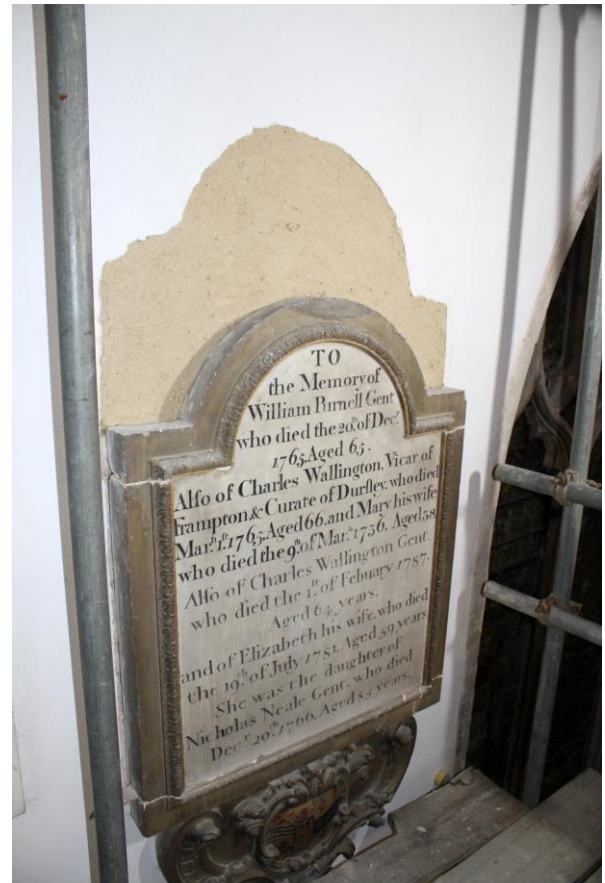 TO
the Memory of
William Purnell Gent
who died the 20th. of Decr.
1765. Aged 65.
Alſo of Charles Wallington. Vicar of
Frampton & Curate of Durſley. who died
Mar. 1st. 1765. Aged 66. and Mary his wife
who died the 9th. of Mar. 1756. Aged 58
Alſo of Charles Wallington Gent.
who died the 1st. of Febuary 1787.
Aged 64 years.
and of Elizabeth his wife. who died
the 19th. of July 1781. Aged 59 years
She was the daughter of
Nicholas Neale Gent. who died
Decr. 29th. 1766. Aged 85 years.